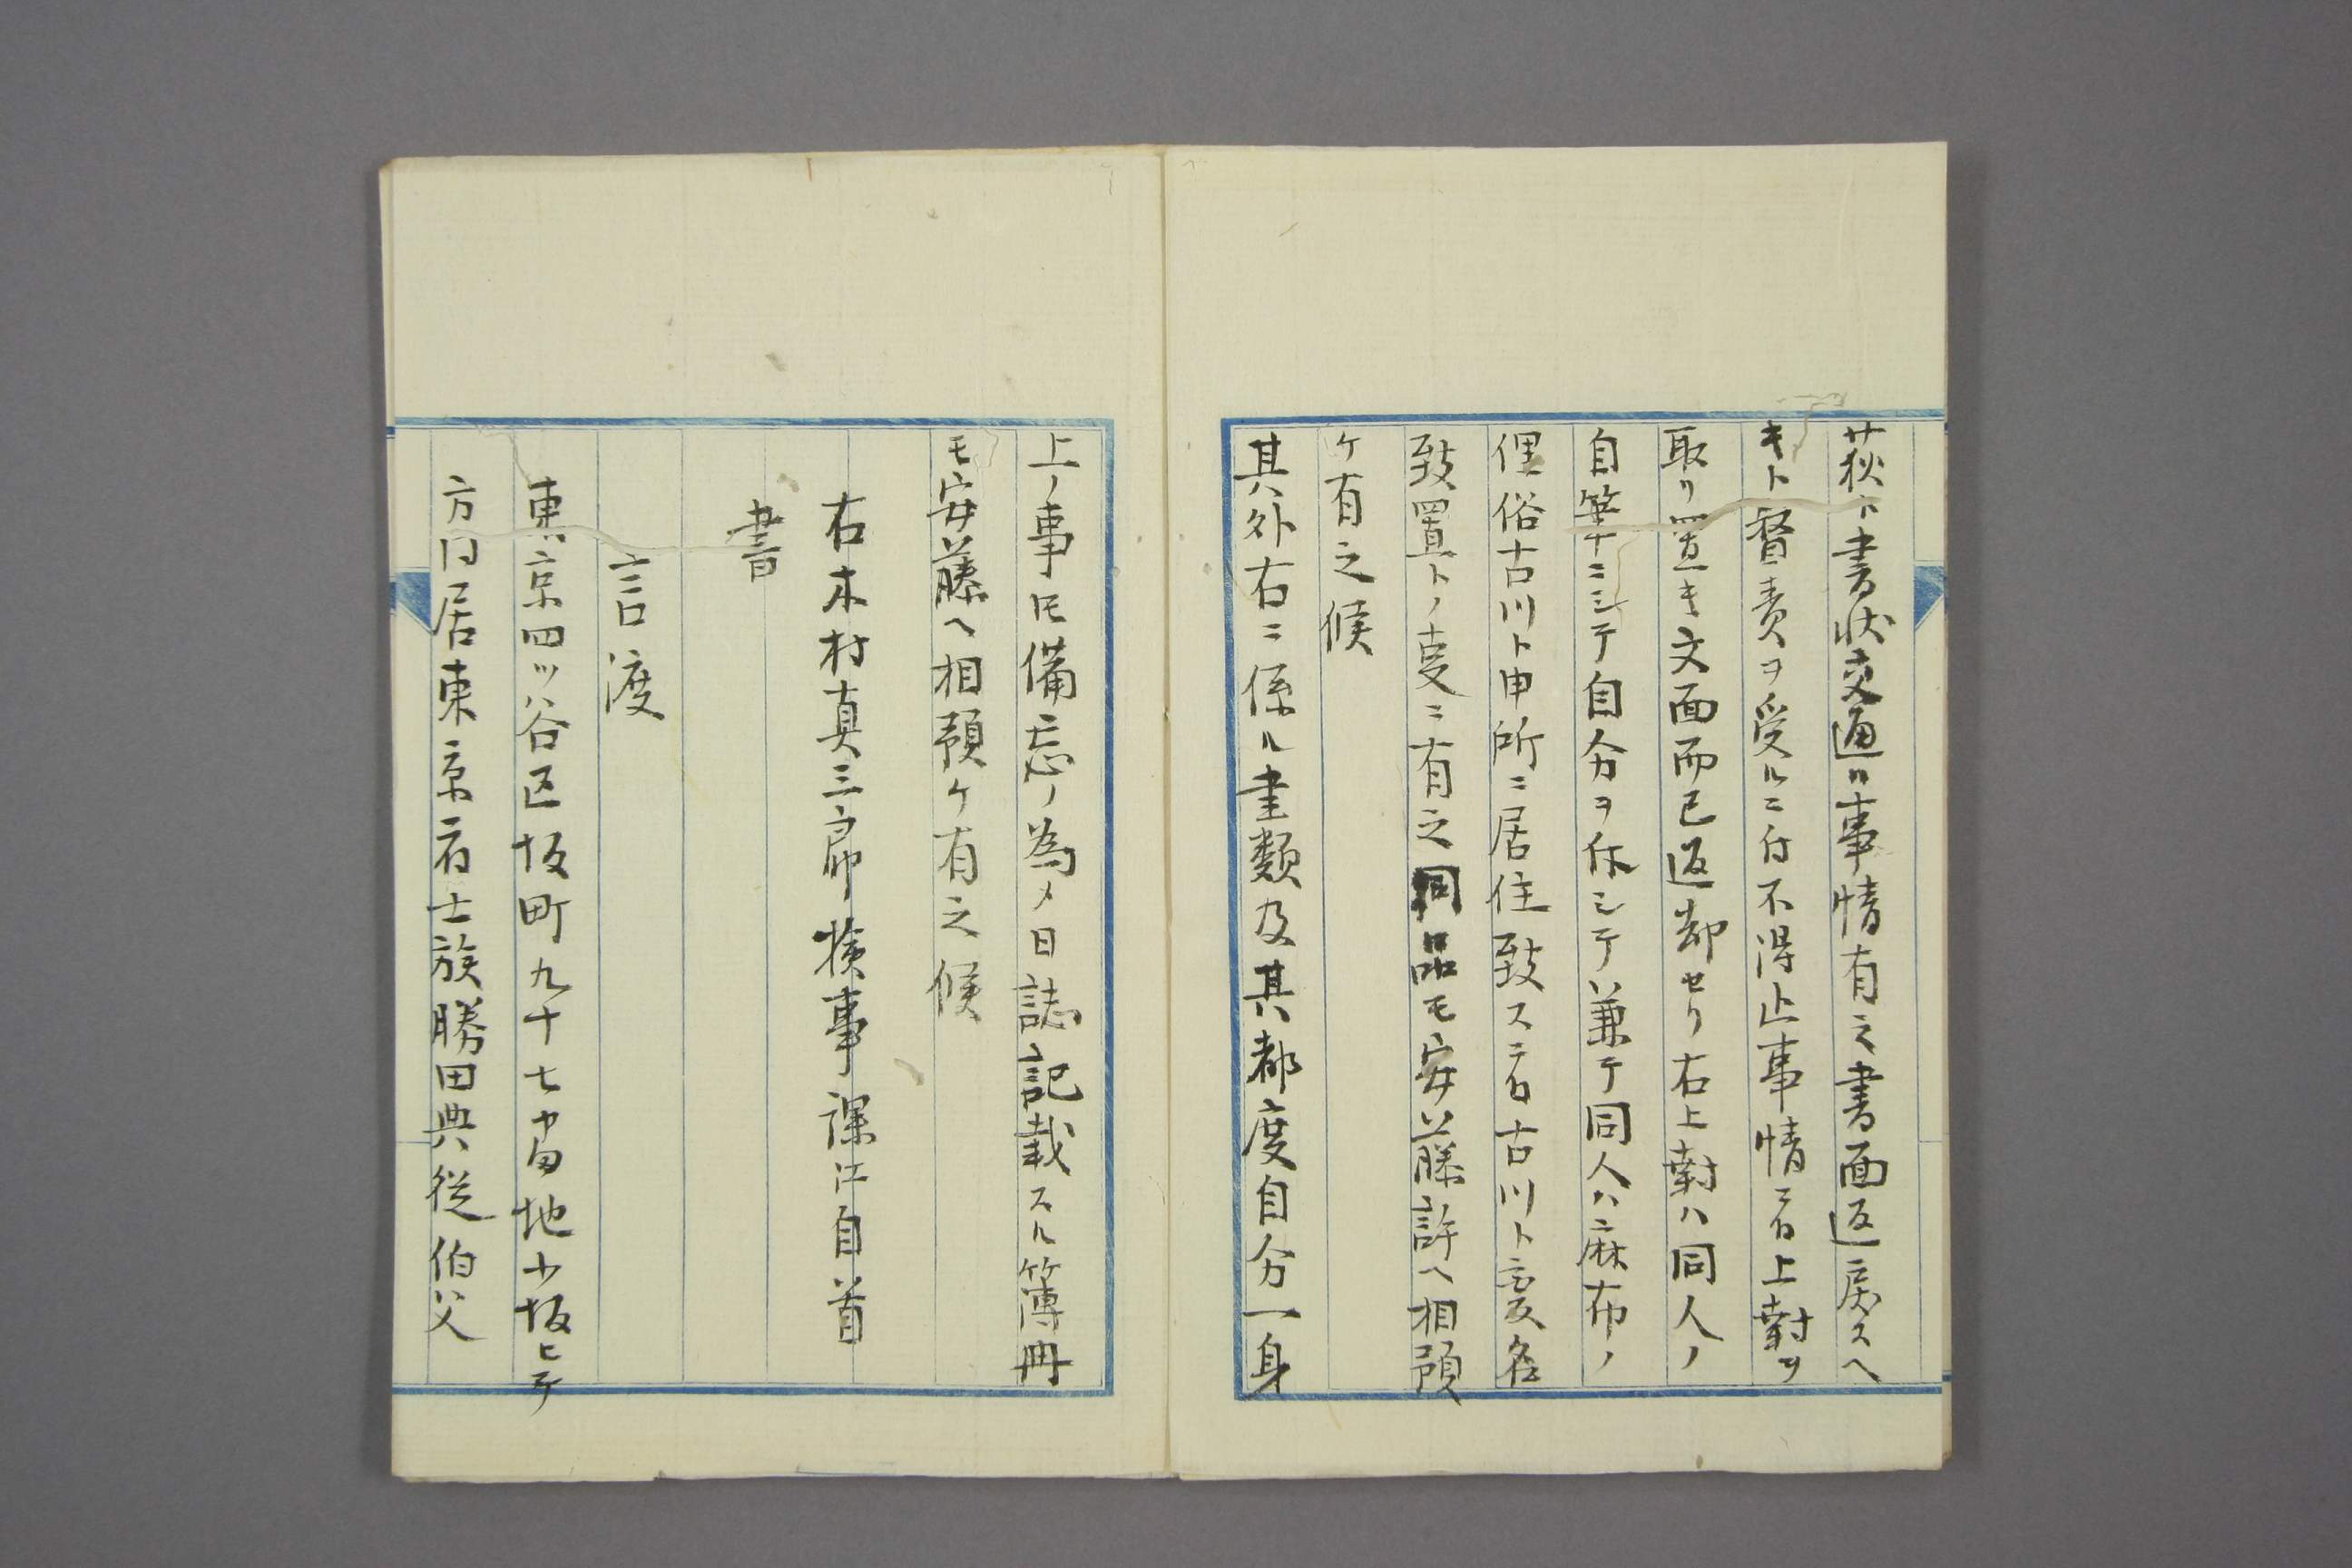 荻ト書状交通ハ事情有之書面返戻スヘ
キト督責ヲ受ルニ付不得止事情ニ而上封ヲ
取リ置キ文面而已返却セリ右上封ハ同人ノ
自筆ニシテ自分ヲ休シテ兼テ同人ハ麻布ノ
俚俗古川ト申所ニ居住致ス二而古川ト変名
致置トノ事ニ有之同品モ安藤許ヘ相預
ケ有之候
其外右ニ係ル書類及其都度自分一身
上ノ事圧備忘ノ為メ日誌記載スル簿冊
モ安藤ヘ相預ケ有之候
右木村真三郎検事課江自首
書
言渡
東京四ツ谷区坂町九十七番地小坂ヒテ
方同居東京府士族勝田典従伯父